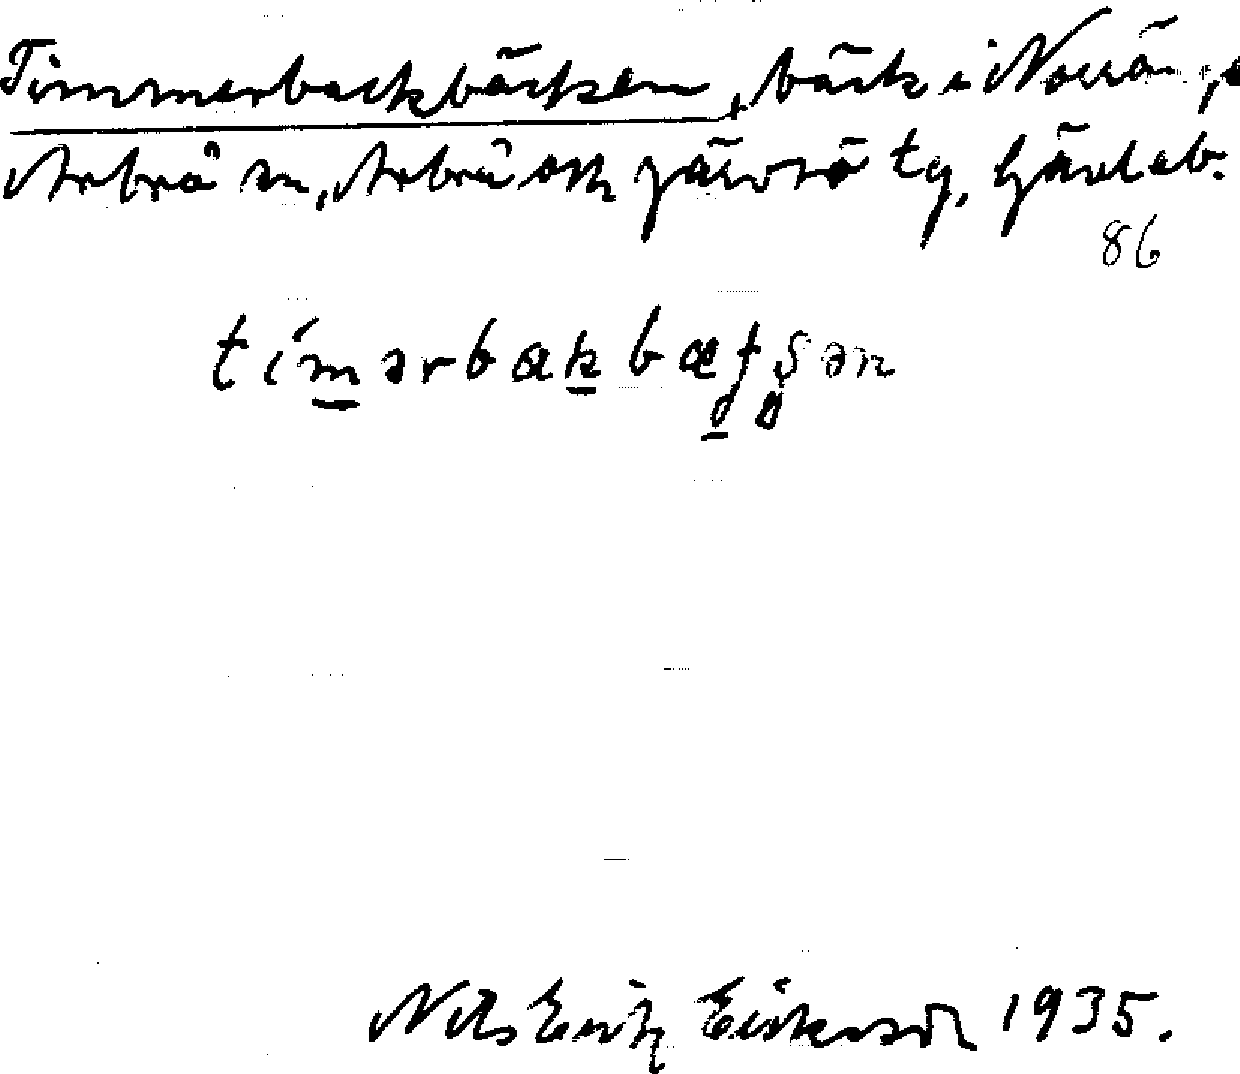 Timmerbackbäcken, bäck i Norrä
Arbrå sn, Arbrå och Järvsö tg, Gävleb.
86
tímərbakbæʈʂən
Nils Erik Eriksson 1935.